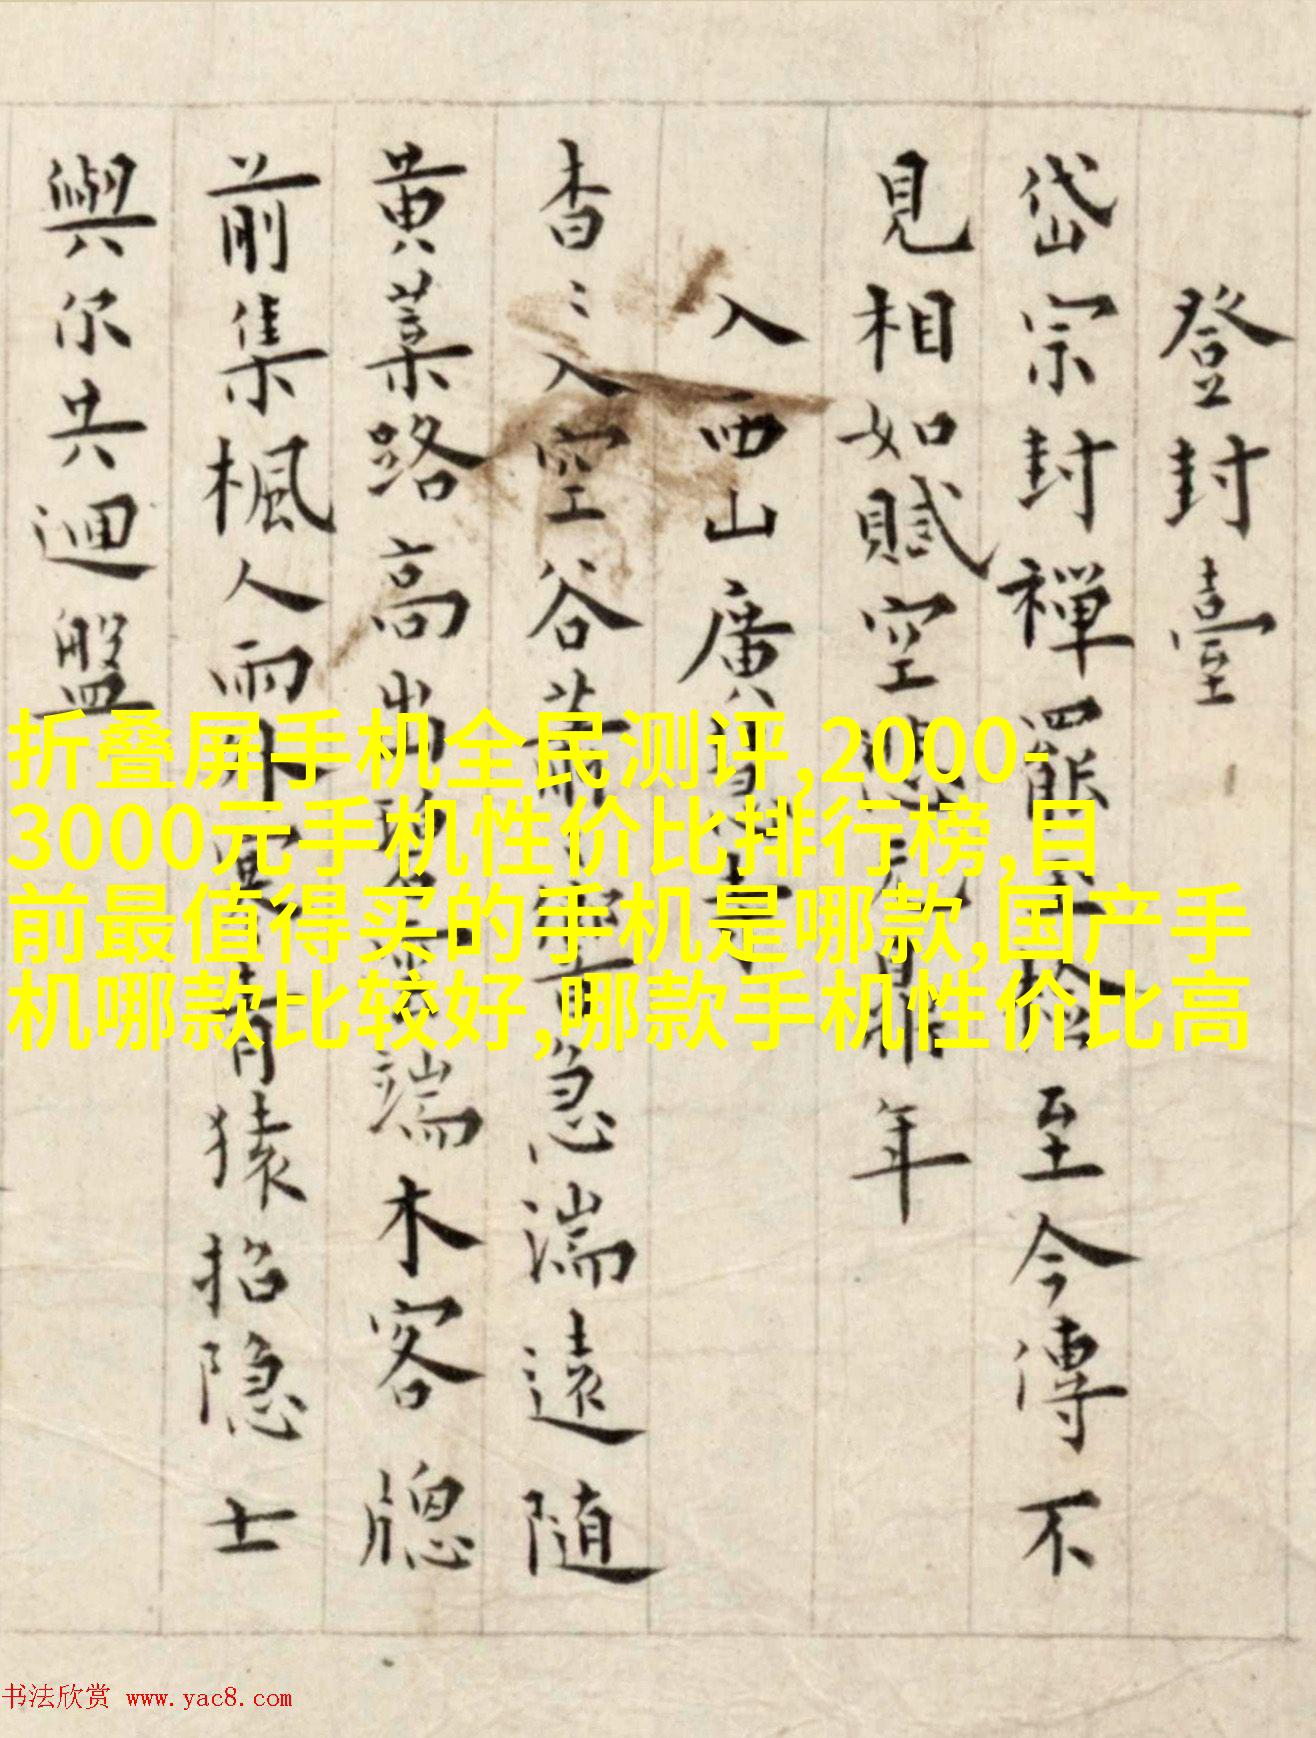 登封臺
岱宗封禅 至今傳不
見相如賦空 年
入西山廣
杳〻入空谷 急湍遠随
黄葉路高出 端木客牕
前集楓人雨外 青猿招隐士
與尔共迴盤
折叠屏手机全民测评,2000-
3000元手机性价比排行榜,目
前最值得买的手机是哪款,国产手
机哪款比较好,哪款手机性价比高
书法欣赏 www.yac8.com